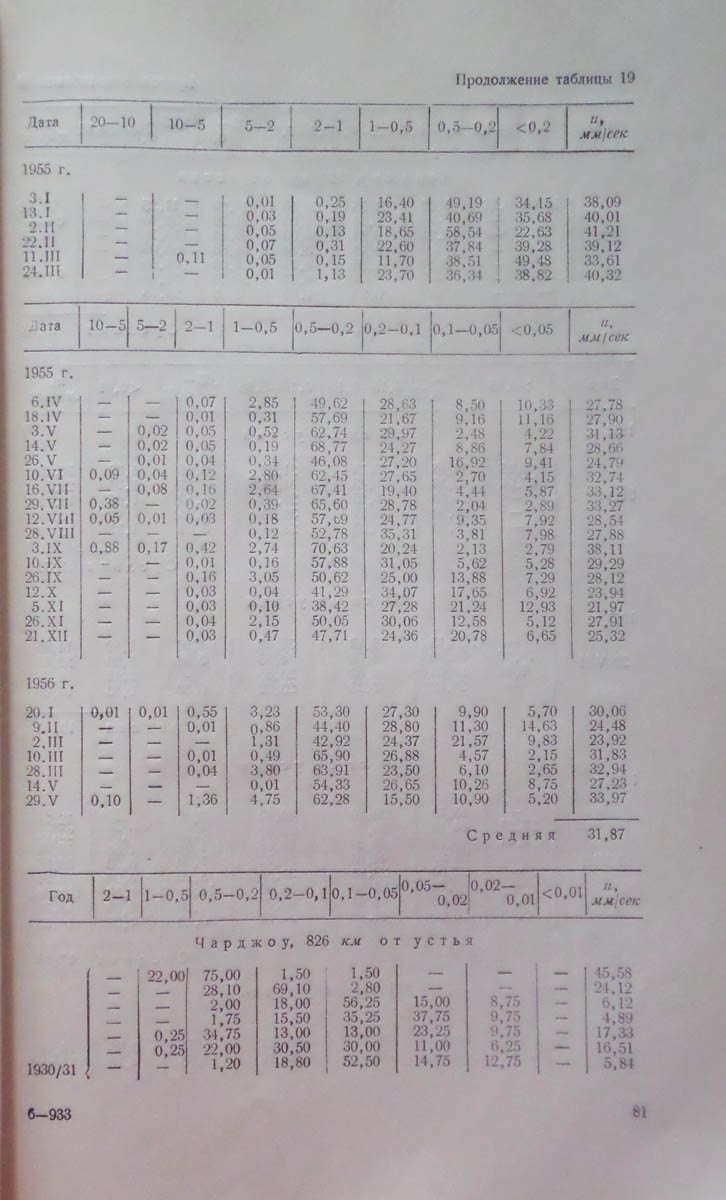 Продолжение таблицы 19
Дата 20—10 10—5 5—2 2—1 1—0,5 0,5—0,2 <0,2 u, мм/сек
1955 г.
3.I — — 0,01 0,25 16,40 49,19 34,15 38,09
13.I — — 0,03 0,19 23,41 40,69 35,68 40,01
2.II — — 0,05 0,13 18,65 58,54 22,63 41,21
22.II — — 0,07 0,31 22,60 37,84 39,28 39,12
11.III — 0,11 0,05 0,15 11,70 38,51 49,48 33,61
24.III — — 0,01 1,13 23,70 36,34 38,82 40,32
Дата 10—5 5—2 2—1 1—0,5 0,5—0,2 0,2—0,1 0,1—0,05 <0,05 u, мм/сек
1955 г.
6.IV — — 0,07 2,85 49,62 28,63 8,50 10,33 27,78
18.IV — — 0,01 0,31 57,69 21,67 9,16 11,16 27,90
3.V — 0,02 0,05 0,52 62,74 29,97 2,48 4,22 31,13
14.V — 0,02 0,05 0,19 68,77 24,27 8,86 7,84 28,66
26.V — 0,01 0,04 0,34 46,08 27,20 16,92 9,41 24,79
10.VI 0,09 0,04 0,12 2,80 62,45 27,65 2,70 4,15 32,74
16.VII — 0,08 0,16 2,64 67,41 19,40 4,44 5,87 33,12
29.VII 0,38 — 0,02 0,39 65,60 28,78 2,04 2,89 33,27
12.VIII 0,05 0,01 0,03 0,18 57,69 24,77 9,35 7,92 28,54
28.VIII — — — 0,12 52,78 35,31 3,81 7,98 27,88
3.IX 0,88 0,17 0,42 2,74 70,63 20,24 2,13 2,79 38,11
10.IX — — 0,01 0,16 57,88 31,05 5,62 5,28 29,29
26.IX — — 0,16 3,05 50,62 25,00 13,88 7,29 28,12
12.X — — 0,03 0,04 41,29 34,07 17,65 6,92 23,94
5.XI — — 0,03 0,10 38,42 27,28 21,24 12,93 21,97
26.XI — — 0,04 2,15 50,05 30,06 12,58 5,12 27,91
21.XII — — 0,03 0,47 47,71 24,36 20,78 6,65 25,32
1956 г.
20.I 0,01 0,01 0,55 3,23 53,30 27,30 9,90 5,70 30,06
9.II — — 0,01 0,86 44,40 28,80 11,30 14,63 24,48
2.III — — — 1,31 42,92 24,37 21,57 9,83 23,92
10.III — — 0,01 0,49 65,90 26,88 4,57 2,15 31,83
28.III — — 0,04 3,80 63,91 23,50 6,10 2,65 32,94
14.V — — — 0,01 54,33 26,65 10,26 8,75 27,23
29.V 0,10 — 1,36 4,75 62,28 15,50 10,90 5,20 33,97
Средняя 31,87
Год 2—1 1—0,5 0,5—0,2 0,2—0,1 0,1—0,05 0,05—0,02 0,02—0,01 <0,01 u, мм/сек
Чарджоу, 826 км от устья
— 22,00 75,00 1,50 1,50 — — — 45,58
— — 28,10 69,10 2,80 — — — 24,12
— — 2,00 18,00 56,25 15,00 8,75 — 6,12
— — 1,75 15,50 35,25 37,75 9,75 — 4,89
— 0,25 34,75 13,00 13,00 23,25 9,75 — 17,33
— 0,25 22,00 30,50 30,00 11,00 6,25 — 16,51
1930/31 — — 1,20 18,80 52,50 14,75 12,75 — 5,84
6—933 81